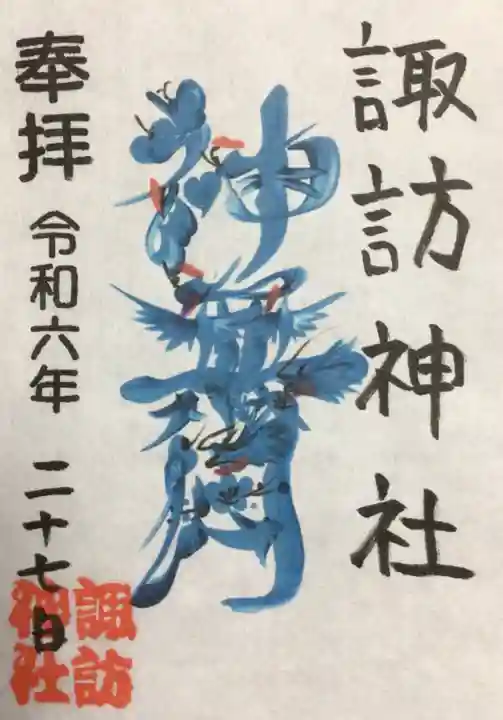 諏訪神社
神無月
奉拝
令和六年 二十七日
諏訪
神社